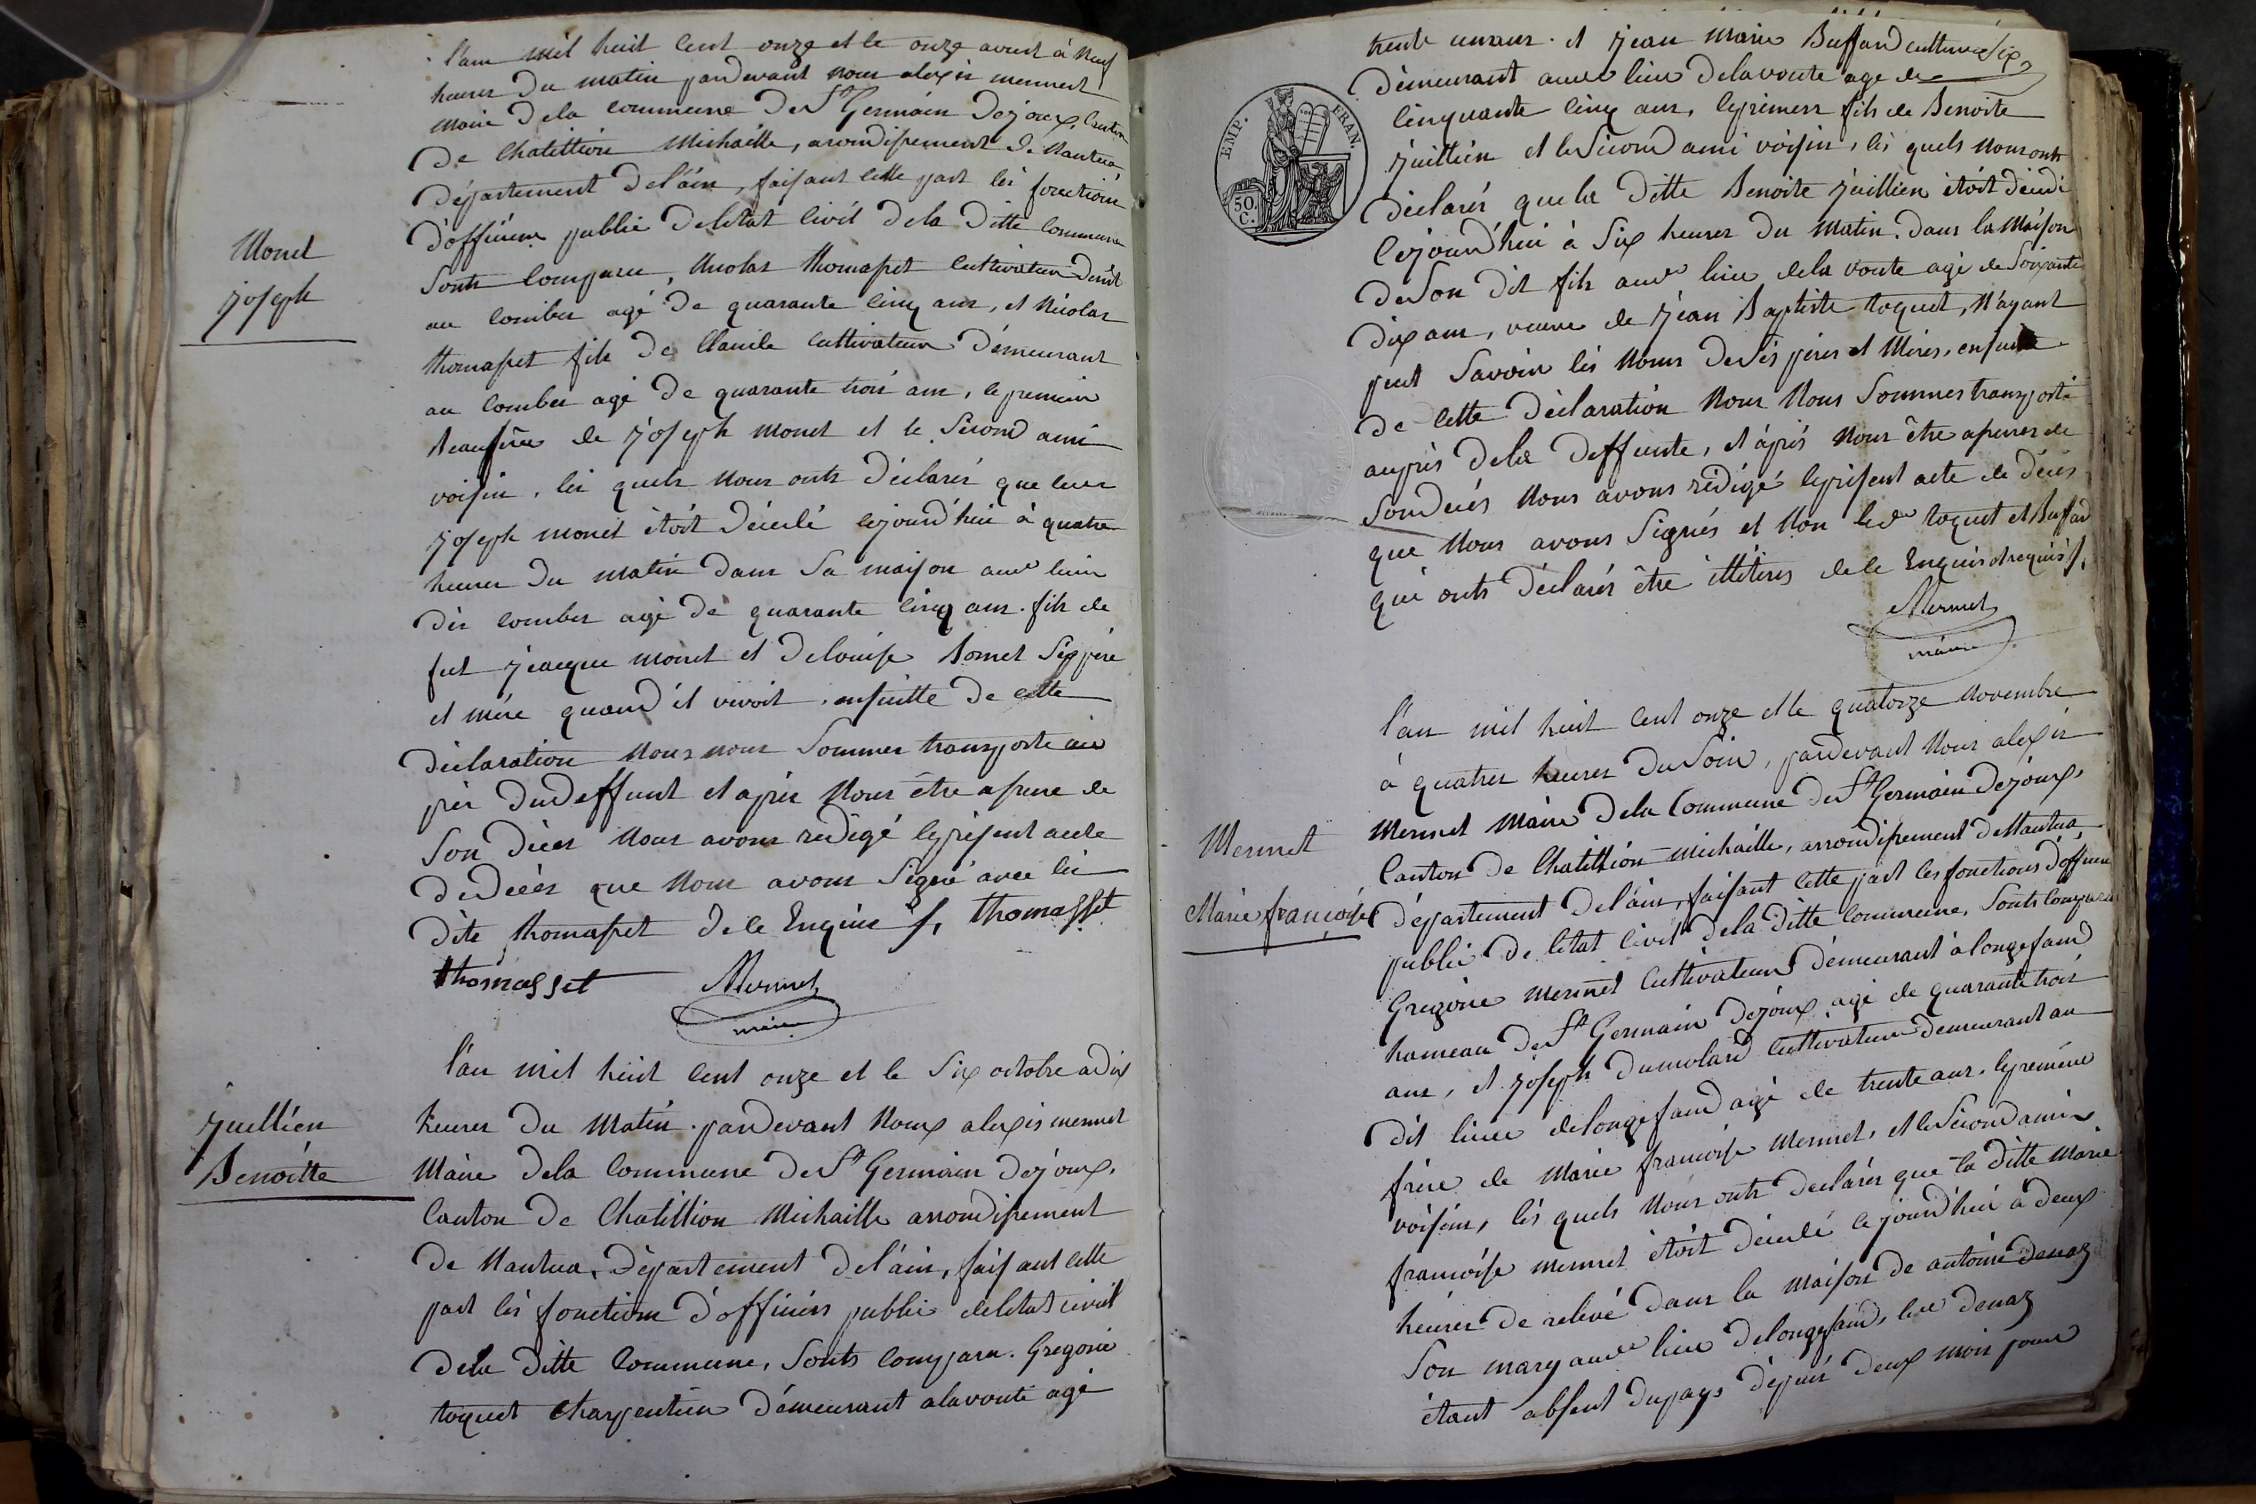 l'an mil huit cent onze et le onze aoust à neuf
heures du matin pardevant nous alexis mermet
maire dela commune de St Germain dejoux, Canton
de Chatillion Michaille, arrondissement de Nantua
département del'ain, faisant cette part les fonctions
d'officier public deletat civil dela ditte commune
Sonts comparu, Nicolas thomasset cultivateur demt
au combes agé de quarante cinq ans, et Nicolas
thomasset fils de Claude cultivateur démeurant
au combes agé de quarante trois ans, le premier
Beaufrère de joseph monet et le Sécond ami
voisin, les quels nous onts déclarés que leur
joseph monet étoit décedé cejourd'hui à quatre
heures du matin dans Sa maison audt lieu
dès combes agé de quarante cinq ans. fils de
fut jeacque monet et delouise Bornet Ses père
et mère quand il vivoit, ensuitte de cette
déclaration nous nous Sommes transporté au
près dudeffunt et après nous être assuré de
Son dècès nous avons redigé leprésent acte
dedécès que nous avons Signé avec les
dits thomasset dece Enquis /, thomasset
thomasset AMermet
maire
Monet
joseph
l'an mil huit cent onze et le Six octobre adix
heures du matin. pardevant Nous alexis mermet
Maire dela Commune de St Germain dejoux,
Canton de Chatillion Michaille arrondissement
de Nantua, département del'ain, faisant cette
part lés fonctions d'officiers public deletat civil
dela ditte Commune, Sonts comparu. Gregoire
toquet charpentier démeurant alavoute agé
juillién
Benoitte
trente unans. et jean marie Buffard cultivateur
démeurant audt lieu delavoute age de
cinquante cinq ans, lepremiers fils de Benoite
juillién et le Sécond ami voisin, lés quels nousonts
déclarés que la ditte Benoite juillien étoit décedé
cejourd'hui à Six heures du matin. dans la Maison
deSon dit fils audt lieu dela voute agé de Soixante
dix ans, veuve de jean Baptiste toquet, N'ayant
put Savoir lés Noms deSès pères et Mères, ensuitte
de cette déclaration Nous Nous Sommes transporté
auprès dela deffunte, et après Nous être assurés de
Sondécès Nous avons rédigé leprésent acte de décès
que Nous avons Signés et Non lesdt toquet et Buffard
qui onts déclarés être illitérés dece Enquis et requis /,
AMermet
maire
EMP. FRAN.
50
C.
l'an mil huit cent onze etle quatorze Novembre
à quatres heures duSoir, pardevant Nous alexis
Mermet Maire dela Commune de St Germain dejoux,
Canton de Chatillion michaille, arrondissement deNantua
département del'ain, faisant cette part les fonctions d'officier
public de letat civil dela ditte Commune, Sonts Comparu
Gregoire mermet Cultivateur démeurant àlongefand
hameau de St Germain dejoux agé de quarantetrois
ans, et joseph dumolard Cultivateur démeurant au
dit lieu delongefand agé de trente ans. lepremiere
frère de Marie françoise Mermet, et le Sécond amis
voisins, lés quels Nous onts declarés que la ditte Marie
françoise mermet étoit décedé cejourd'hui à deux
heures de relevé dans la maison de antoine denaz
Son mary audt lieu delongefand, ledt denaz
étant absent dupays dépuis deux mois pour
Mermet
Marie françoise